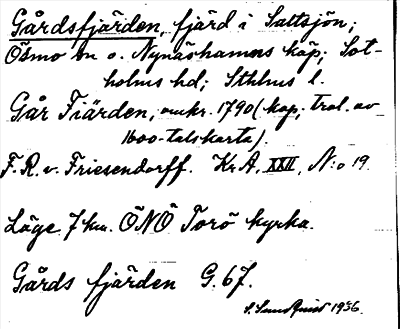 Gårdsfjärden, fjärd i Saltsjön;
Ösmo sn o. Nynäshamns köp; Sot-
holms hd; Sthlms l.
Går Fiärden, omkr. 1790 (kop; trol. av
1600-talskarta).
F. R. v. Friesendorff. Kr A, XXII, N:o 19.
Läge 7 km. ÖNÖ Torö kyrka.
Gårds fjärden G. 67.
S. Sundquist 1936.